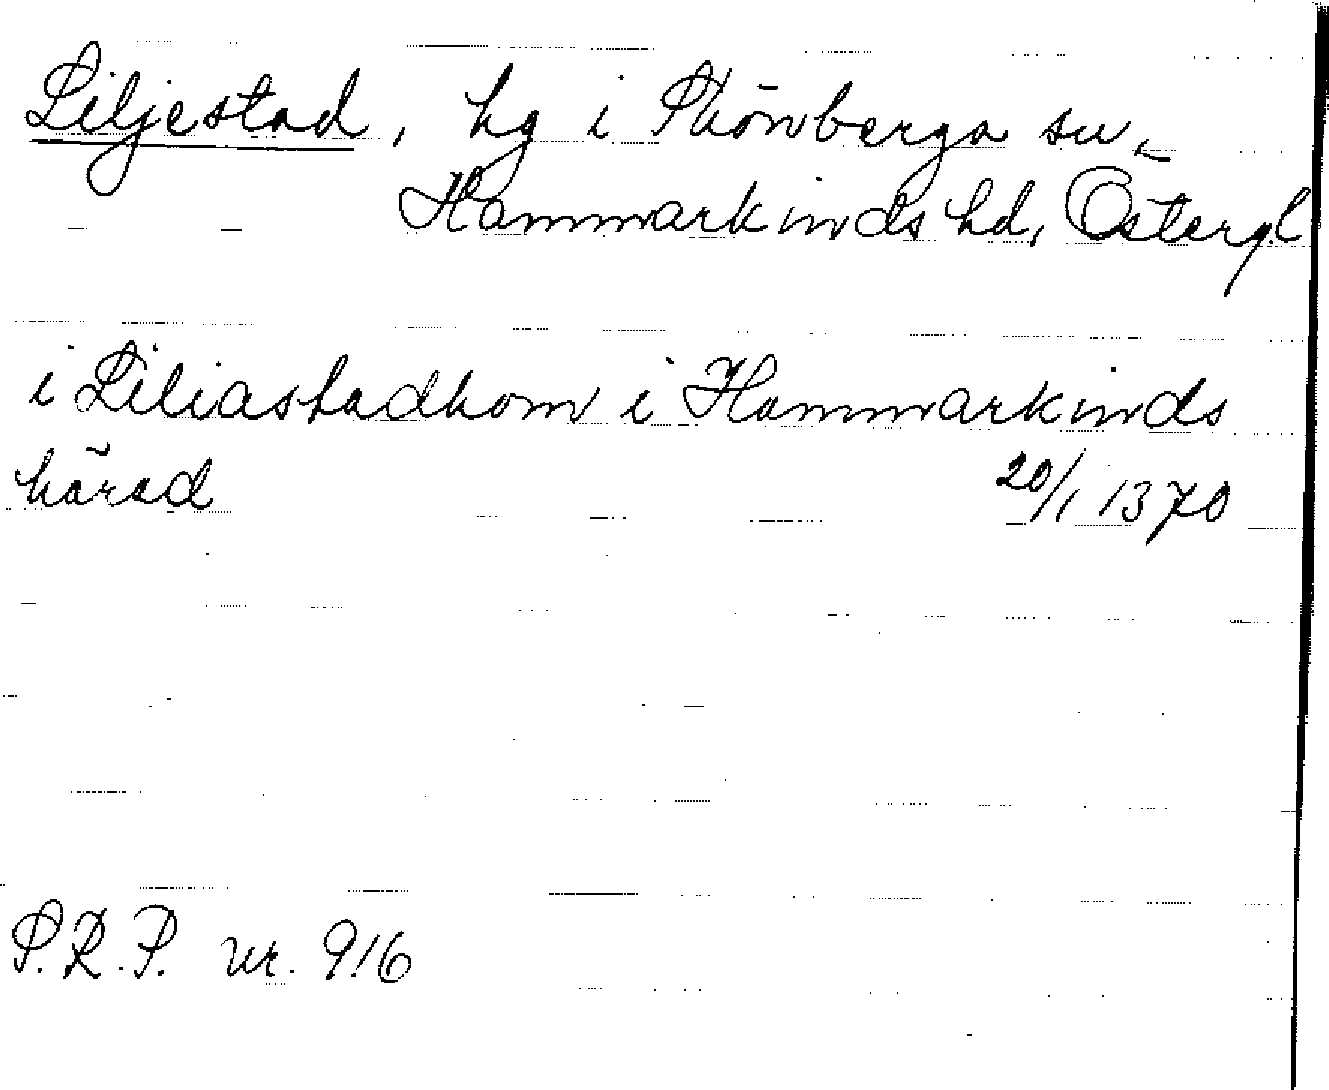 Liljestad, hg i Skönberga sn,
Hammarkinds hd, Östergl
i Liliastadhom i Hammarkinds
härad 20/1 1370
P.R.P. nr. 916